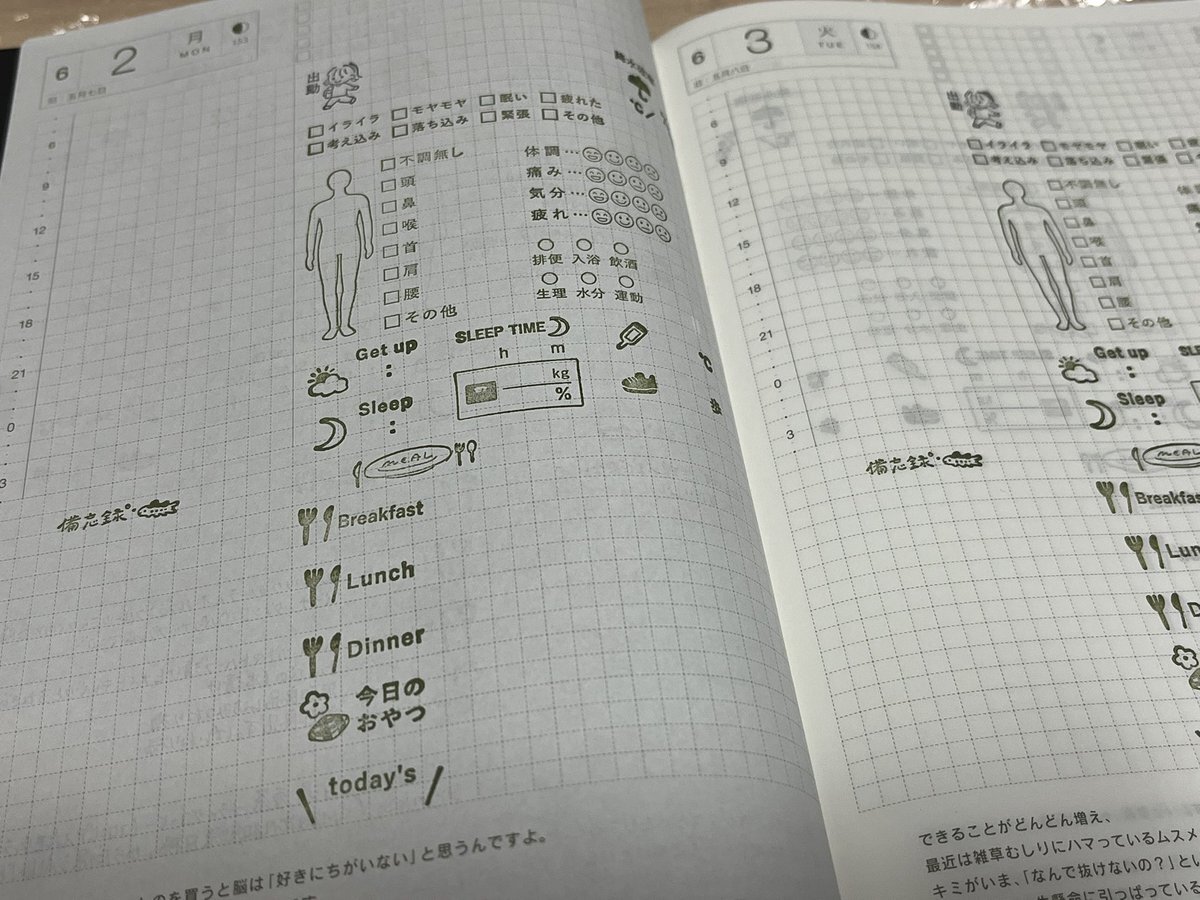 6 2 月 MON 153
旧・五月七日
出勤
□イライラ □モヤモヤ □眠い □疲れた
□考え込み □落ち込み □緊張 □その他
℃/
□不調無し
□頭
□鼻
□喉
□首
□肩
□腰
□その他
体調…
痛み…
気分…
疲れ…
排便 入浴 飲酒
生理 水分 運動
Get up
:
SLEEP TIME
h m
kg
%
℃
Sleep
:
MEAL
6
9
12
15
18
21
0
3
備忘録
Breakfast
Lunch
Dinner
今日の
おやつ
\ today's /
のを買うと脳は「好きにちがいない」と思うんですよ。
6 3 火 TUE
旧・五月八日
出勤
□イライラ □モヤモヤ □眠い
□考え込み □落ち込み □緊張
□不調無し
□頭
□鼻
□喉
□首
□肩
□腰
□その他
Get up
:
Sleep
:
MEAL
6
9
12
15
18
21
0
3
備忘録
Breakfas
Lun
D
できることがどんどん増え、
最近は雑草むしりにハマっているムスメ
キミがいま、「なんで抜けないの？」とい
生懸命に引っぱっている